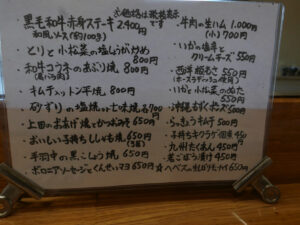 ※価格は税抜表示です
黒毛和牛赤身ステーキ 2,400円
和風ソース(約100g)
とりと小松菜の塩しょうが炒め 800円
和牛コウネのあぶり焼 800円
(肩バラ肉)
キムチェットン平焼 800円
砂ずりの塩焼 七味焼 700円
上田のおあげ焼とかつおみそ 650円
おいしい子持ちししゃも焼 650円
手羽中の黒こしょう焼 650円
ボロニアソーセージとくんせいマヨ 650円
牛肉の生ハム 1,000円
(小) 700円
いかの塩辛とクリームチーズ 550円
550円
いかと小松菜のぬた 550円
沖縄もずく 500円
らっきょうキムチ 500円
子持ちキクラゲ 450円
九州たくあん 450円
若ごぼう漬け 450円
650円